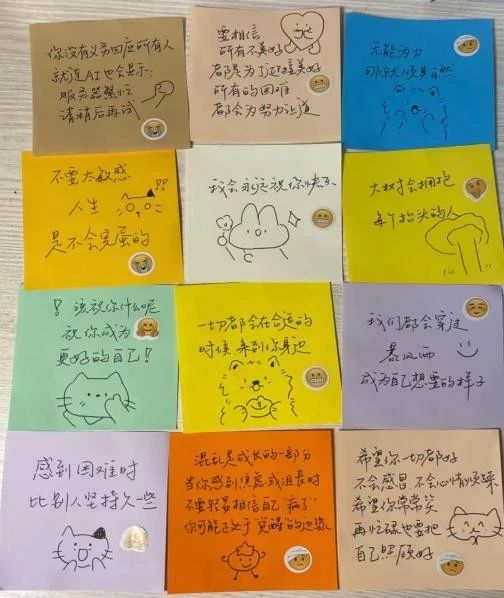 你没有义务回应所有人
就连AI也会显示:
服务器繁忙
请稍后再试
要相信
所有不美好
都是为了迎接美好
所有的困难
都会为努力让道
无能为力
那就顺其自然
不要太敏感
人生
是不会完蛋的
我会永远祝你快乐
大树会拥抱
每个抬头的人
! 该祝你什么呢
祝你成为
更好的自己!
一切都会在合适的
时候 来到你身边
我们都会穿过
暴风雨
成为自己想要的样子
感到困难时
比别人坚持久一些
混乱是成长的一部分
当你感到焦虑或沮丧时
不要轻易相信自己"病了"
你可能正处于"觉醒"的边缘
希望你一切都好
不会感冒 不会心情烦躁
希望你常常笑
再忙碌也要把
自己照顾好